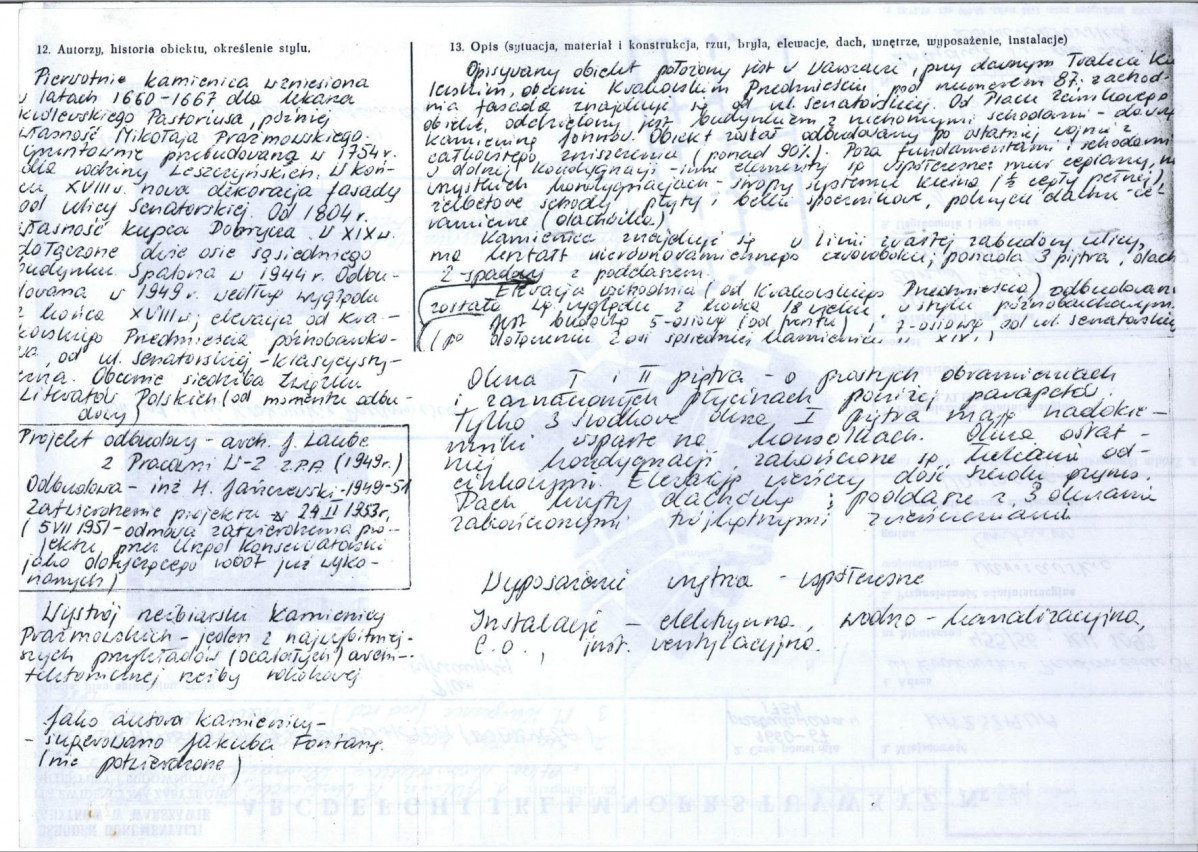 12. Autorzy, historia obiektu, określenie stylu.
Pierwotnie kamienica wzniesiona
w latach 1660-1667 dla lekarza
królewskiego Pastoriusa, później
własność Mikołaja Prażmowskiego.
Gruntownie przebudowana w 1754 r.
dla rodziny Leszczyńskich. W koń-
cu XVIII w. nowa dekoracja fasady
od ulicy Senatorskiej. Od 1804 r.
własność kupca Dobrycza. W XIX w.
dołączone dwie osie sąsiedniego
budynku. Spalona w 1944 r. Odbu-
dowana w 1949 r. według wyglądu
z końca XVIII w., elewacja od Kra-
kowskiego Przedmieścia późnobaroko-
wa, od ul. Senatorskiej - klasycysty-
czna. Obecnie siedziba Związku
Literatów Polskich (od momentu odbu-
dowy)
Projekt odbudowy - arch. J. Laube
z Pracowni W-2 Z.P.A (1949 r.)
Odbudowa - inż H. Jańczewski - 1949-51
Zatwierdzenie projektu 24 II 1953 r,
(5 VII 1951 - odmowa zatwierdzenia pro-
jektu przez Urząd Konserwatorski
jako dotyczącego robót już wyko-
nanych)
Wystrój rzeźbiarski Kamienicy
Prażmowskich - jeden z najwybitniej-
szych przykładów (ocalałych) archi-
tektonicznej rzeźby rokokowej
Jako autora kamienicy -
- sugerowano Jakuba Fontanę.
(nie potwierdzone)
13. Opis (sytuacja, materiał i konstrukcja, rzut, bryła, elewacje, dach, wnętrze, wyposażenie, instalacje)
Opisywany obiekt położony jest w Warszawie, przy dawnym Trakcie Kró
lewskim, obecnie Krakowskim Przedmieściu pod numerem 87; zachod-
nia fasada znajduje się od ul. Senatorskiej. Od Placu Zamkowego
obiekt oddzielony jest budynkiem z ruchomymi schodami - dawną
kamienicą Johnów. Obiekt został odbudowany po ostatniej wojnie z
całkowitego zniszczenia (ponad 90%). Poza fundamentami i schodami
w dolnej kondygnacji - inne elementy są współczesne: mur ceglany, na
wszystkich kondygnacjach - stropy systemu Kleina (½ cegły pełnej),
żelbetowe schody, płyty i belki spocznikowe, pokrycie dachu ce-
ramiczne (dachówka)
Kamienica znajduje się w linii zwartej zabudowy ulicy,
ma kształt nierównoramiennego czworoboku; posiada 3 piętra, dach
2-spadowy z poddaszem.
Elewacja wschodnia (od Krakowskiego Przedmieścia) odbudowana
została wg wyglądu z końca 18 wieku w stylu późnobarokowym.
Jest budowlą 5-osiową (od frontu) i 7-osiową od ul. Senatorskiej
(po dołączeniu 2 osi sąsiedniej kamienicy w XIX.)
Okna I i II piętra - o prostych obramieniach
i zaznaczonych płycinach poniżej parapetów.
Tylko 3 środkowe okna I piętra mają nadokie-
nniki wsparte na konsolkach. Okna ostat-
niej kondygnacji zakończone są łukiem od-
cinkowym. Elewację wieńczy dość szeroki gzyms.
Dach kryty dachówką i poddasze z 3 oknami
zakończonymi trójkątnymi zwieńczeniami
Wyposażenie wnętrza - współczesne
Instalacje - elektryczna, wodno-kanalizacyjna,
C.O., inst. wentylacyjna.